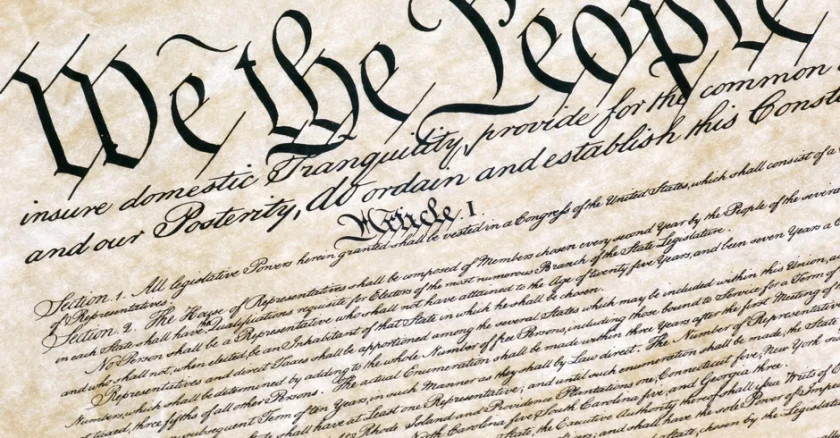 We the People
insure domestic Tranquility, provide for the common
and our Posterity, do ordain and establish this Const
Article. I.
Section. 1. All legislative Powers herein granted shall be vested in a Congress of the United States, which shall consist of a
of Representatives.
Section. 2. The House of Representatives shall be composed of Members chosen every second Year by the People of the several
in each State shall have the Qualifications requisite for Electors of the most numerous Branch of the State Legislature.
No Person shall be a Representative who shall not have attained to the Age of twenty five Years, and been seven Years a
and who shall not, when elected, be an Inhabitant of that State in which he shall be chosen.
Representatives and direct Taxes shall be apportioned among the several States which may be included within this Union,
Numbers, which shall be determined by adding to the whole Number of free Persons, including those bound to Service for a Term of
taxed, three fifths of all other Persons. The actual Enumeration shall be made within three Years after the first Meeting of
subsequent Term of ten Years, in such Manner as they shall by Law direct. The Number of Representatives
shall have at Least one Representative; and until such enumeration shall be made, the State
Rhode Island and Providence Plantations one, Connecticut five, New York
North Carolina five, South Carolina five, and Georgia three.
State, the Executive Authority thereof shall issue Writs of
shall have the sole Power of